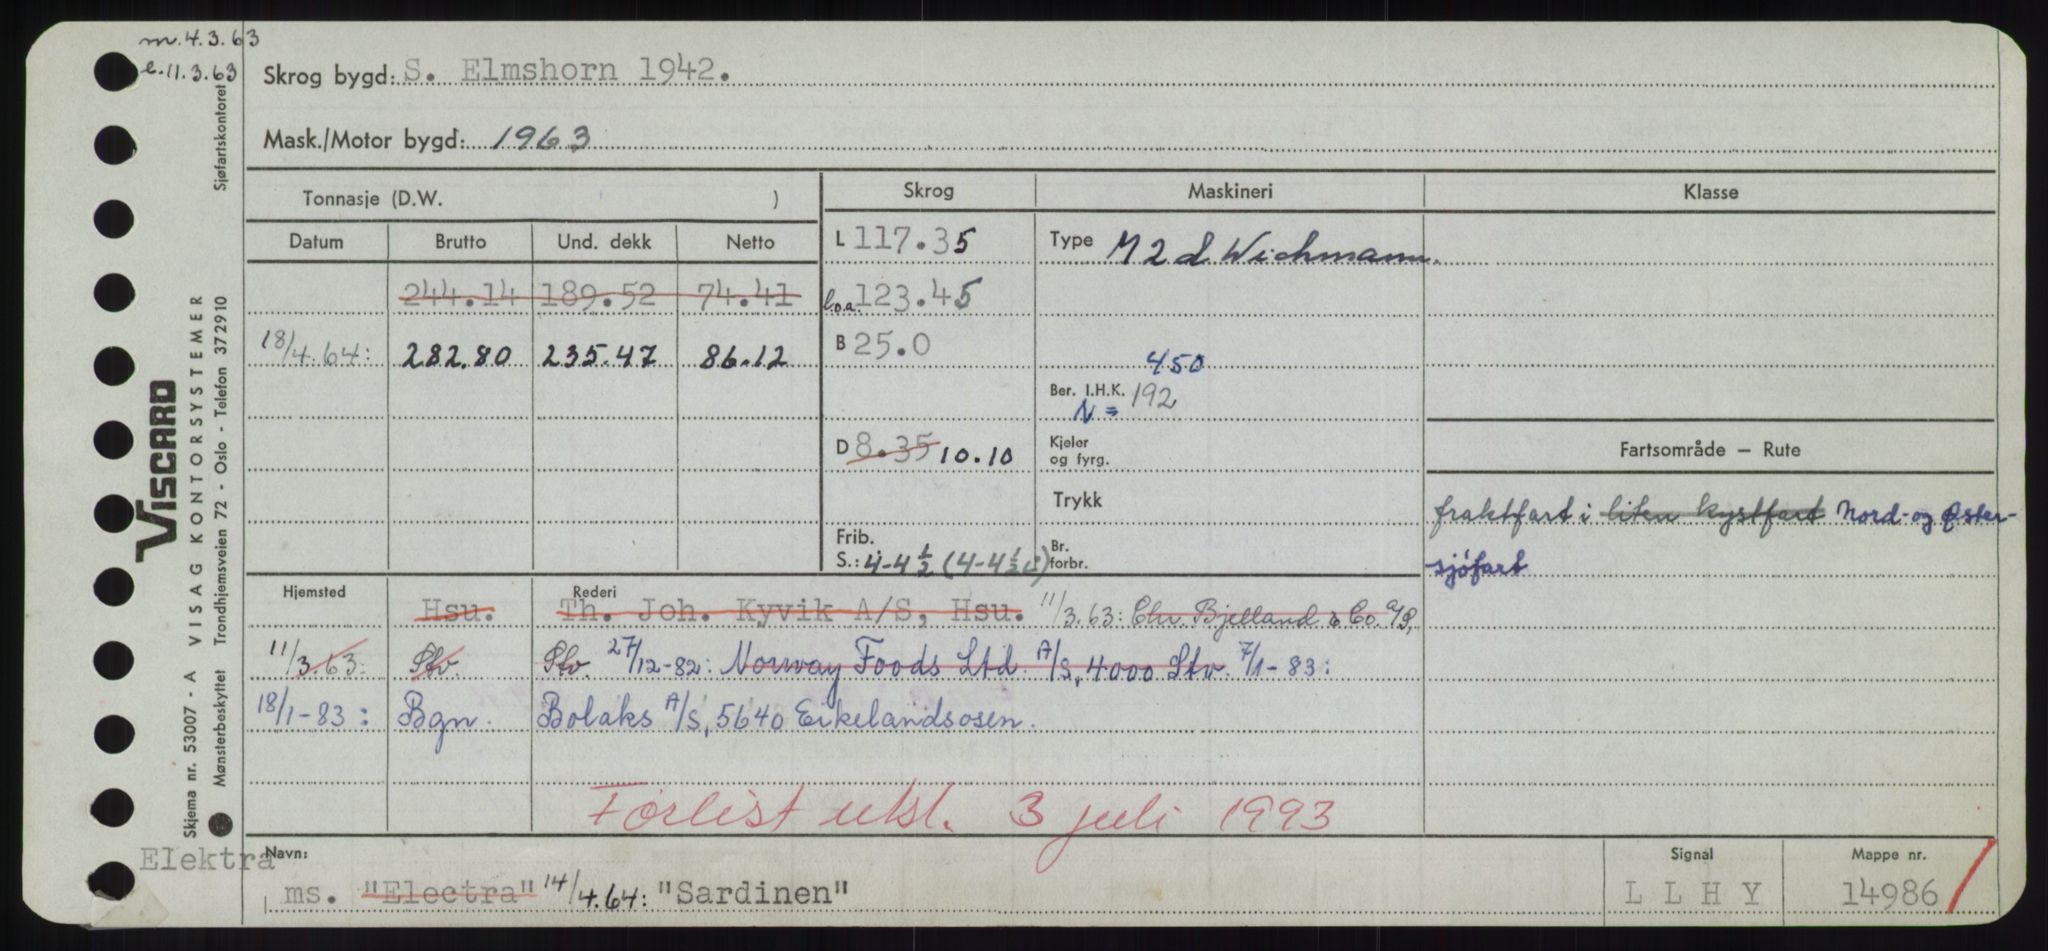 m. 4.3.63
e. 11.3.63
Skrog bygd: S. Elmshorn 1942.
Mask./Motor bygd: 1963
Sjøfartskontoret
Tonnasje (D.W. )
Skrog Maskineri Klasse
Datum Brutto Und. dekk Netto
L 117.35
Type M 2 d Wichmann.
244.14 189.52 74.41
l.o.a. 123.45
18/4.64: 282.80 235.47 86.12
B 25.0
450
Ber. I.H.K. 192
N =
D 8.35 10.10
Kjeler og fyrg.
Fartsområde – Rute
Trykk
fraktfart i liten kystfart Nord- og Øster-
sjøfart
Frib.
S.: 4-4 1/2 (4-4 1/2 )
Br. forbr.
Hjemsted Rederi
Hsu. Th. Joh. Kyvik A/S, Hsu. 11/3.63: Chr. Bjelland & Co. A/S,
11/3.63: Stv. Stv. 27/12-82: Norway Foods Ltd. A/S, 4000 Stv. 7/1-83:
18/1-83: Bgn. Bolaks A/S, 5640 Eikelandsosen.
Forlist utsl. 3 juli 1993
Navn: Signal Mappe nr.
Elektra
ms. "Electra" 14/4.64: "Sardinen" L L H Y 14986
VISCARD
VISAG KONTORSYSTEMER
Trondhjemsveien 72 - Oslo - Telefon 372910
Skjema nr. 53007 - A
Mønsterbeskyttet